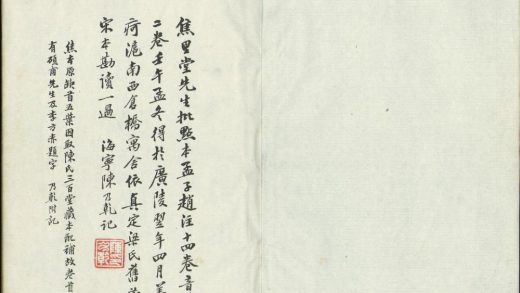 焦里堂先生批點本孟子趙注十四卷音
二卷壬午孟冬得於廣陵翌年四月養
疴滬南西倉橋寓舍依真定梁氏舊藏
宋本勘讀一過 海寧陳乃乾記
焦本原缺首五葉因取陳氏三百堂藏本配補故卷首
有碩甫先生及李方赤題字 乃乾附記